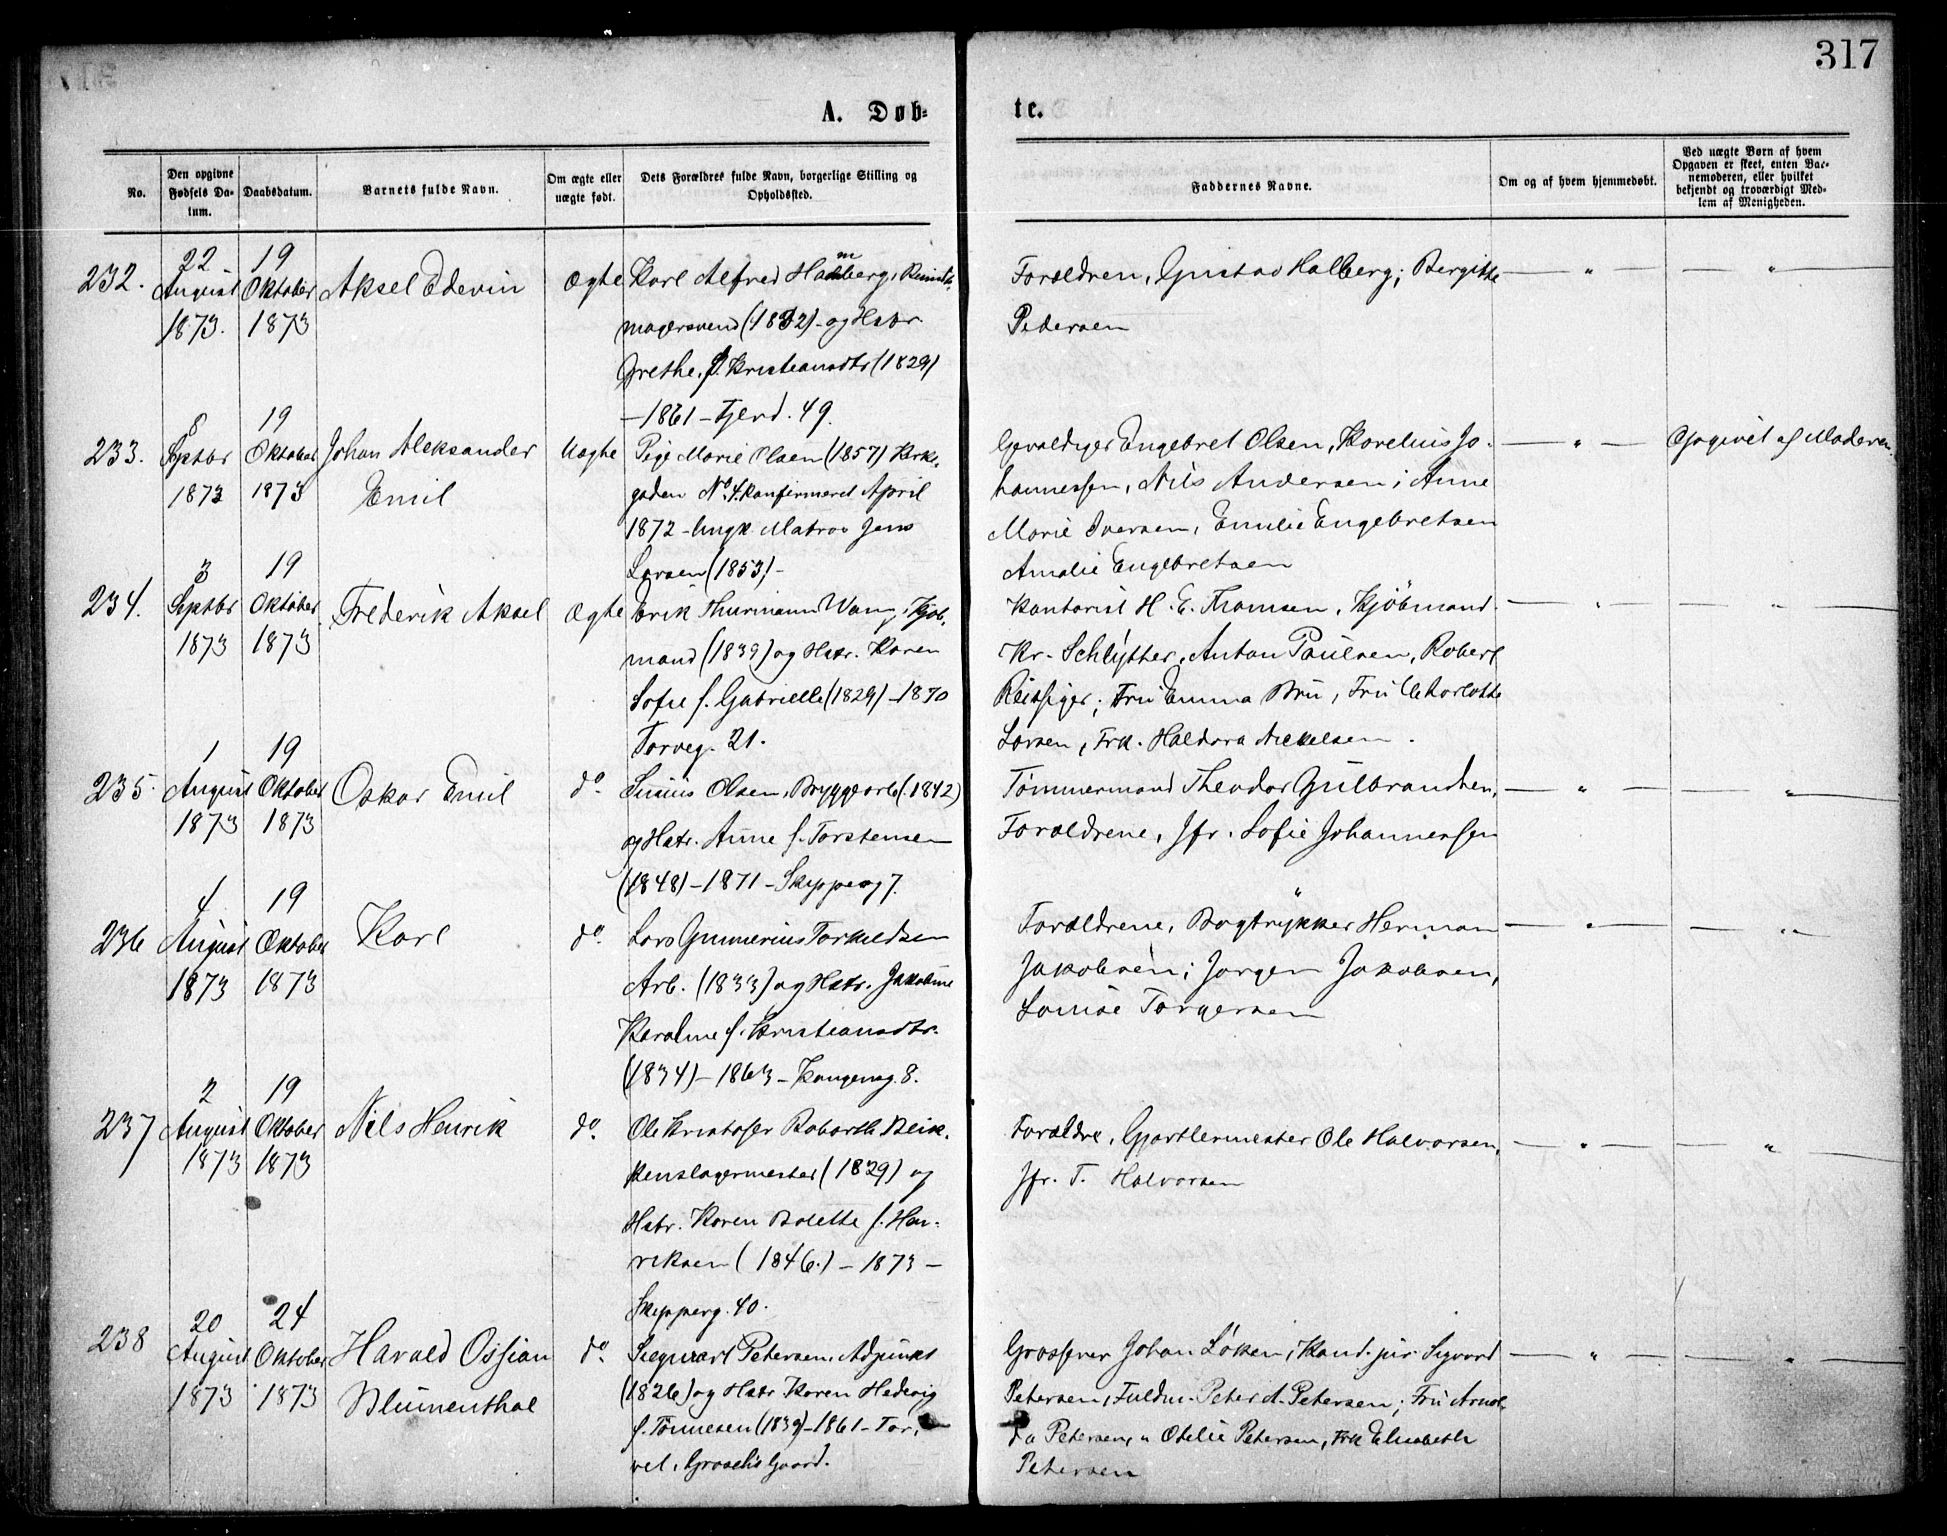 317
A. Døb-
te.
No.
Den opgivne Fødsels Da-tum.
Daabsdatum.
Barnets fulde Navn.
Om ægte eller uægte født.
Dets Forældres fulde Navn, borgerlige Stilling og Opholdssted.
Faddernes Navne.
Om og af hvem hjemmedøbt.
Ved uægte Børn af hvem Opgaven er skeet, enten Bar-nemoderen, eller hvilket bekjendt og troværdigt Med-lem af Menigheden.
232.
22 August 1873.
19 Oktober 1873
Aksel Edevin
Ægte
Karl Alfred
magersvend (1832) - og Hstr.
Grethe, f. Kristiansdtr (1829)
- 1861 - Fjerd. 49.
Forældren, Gustav Halberg; Bergitte
Pedersen
233.
8 Septbr 1873
19 Oktober 1873
Johan Aleksander
Emil
Uægte
Pige Marie Olsen (1857) Kirke-
gaden No 4. konfirmeret April
1872 - Ungk. Matros Jens
Larsen (1853) -
Gevaldiger Engebret Olsen, Karelius Jo-
hannessen, Nils Andersen; Anne
Marie Iversen, Emilie Engebretsen
Amalie Engebretsen
Opgivet af Moderen.
234.
3 Septbr 1873
19 Oktober 1873
Frederik Aksel
Ægte
Erik Thurmann Wang, Kjøb-
mand (1839) og Hstr. Karen
Sofie f. Gabrielle (1829) - 1870
Torveg. 21.
Kontorist H. E. Thomsen, Kjöbmand
Kr. Schlytter, Anton Paulsen, Robert
Reissiger; Fru Emma Bru, Fru Charlotte
Larsen, Frk. Haldora Mekelsen.
235.
1 August 1873
19 Oktober 1873
Oskar Emil
do.
Sirius Olsen, Bryggearb (1842)
og Hstr. Anne f. Torstensen
(1848) - 1871 - Skipperg 7.
Tømmermand Theodor Gulbrandsen,
Forældrene, Jfr. Sofie Johannessen
236
4 August 1873
19 Oktober 1873
Karl
do.
Lars Gunnerius Torkildsen
Arb. (1833) og Hstr. Jakobine
Karoline f. Kristiansdtr.
(1834) - 1863 - Kongensg. 8.
Forældrene, Bogtrykker Herman
Jakobsen; Jørgen Jakobsen,
Louise Torgersen
237
2 August 1873
19 Oktober 1873
Nils Henrik
do.
Ole Kristofer Robarth Blik-
kenslagermester (1829) og
Hstr. Karen Bolette f. Hen-
riksen (1846.) - 1873 -
Skipperg. 40.
Forældre, Gjørtlermester Ole Halvorsen,
Jfr. T. Halvorsen
238
20 August 1873
24 Oktober 1873
Harald Ossian
Blumenthal
do.
Siegwart Petersen, Adjunkt
(1826) og Hstr Karen Hedevig
f. Tönnesen (1839) - 1861 - Tor-
vet, Grosehs Gaard.
Grosserer Johan Løken, Kand. jur. Sigvard
Petersen, Fuldm. Peter A. Petersen; Fru Arnol-
da Petersen, " Otilie Petersen, Frk Elisabeth
Petersen